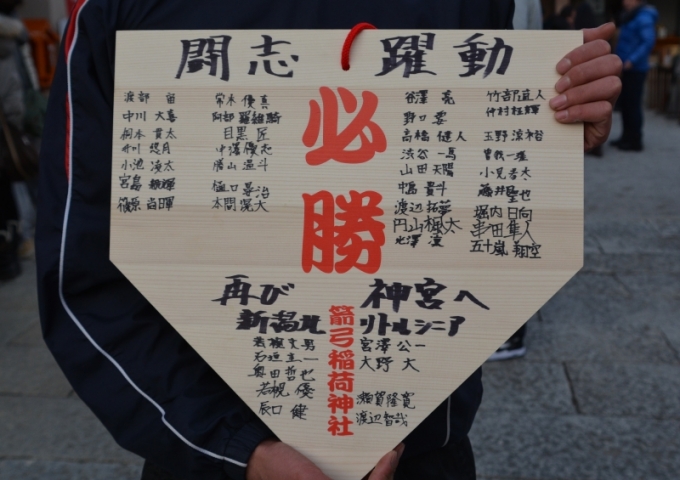 闘志 躍動
必勝
渡部 宙
中川 大喜
桐本 貴太
井川 悠月
小池 凌太
宮島 颯輝
篠原 当暉
常木 優真
阿部 羅維騎
目黒 匠
中澤 優志
勝山 遥斗
樋口 晃治
本間 滉大
谷澤 亮
野口 要
高橋 健人
渋谷 一馬
山田 天陽
中島 貴斗
渡辺 拓夢
円山 楓太
北澤 凛
竹部 直人
仲村 柾輝
玉野
曽我 一
小見 岳大
藤井 堅也
堀内 日向
串田 隼人
五十嵐 翔空
再び 神宮へ
新潟北 リトルシニア
箭弓稲荷神社
若槻 文男
石垣 圭一
奥田 哲也
若槻 優
辰口 健
宮澤 公一
大野 大
瀬賀 隆寛
渡辺 智哉